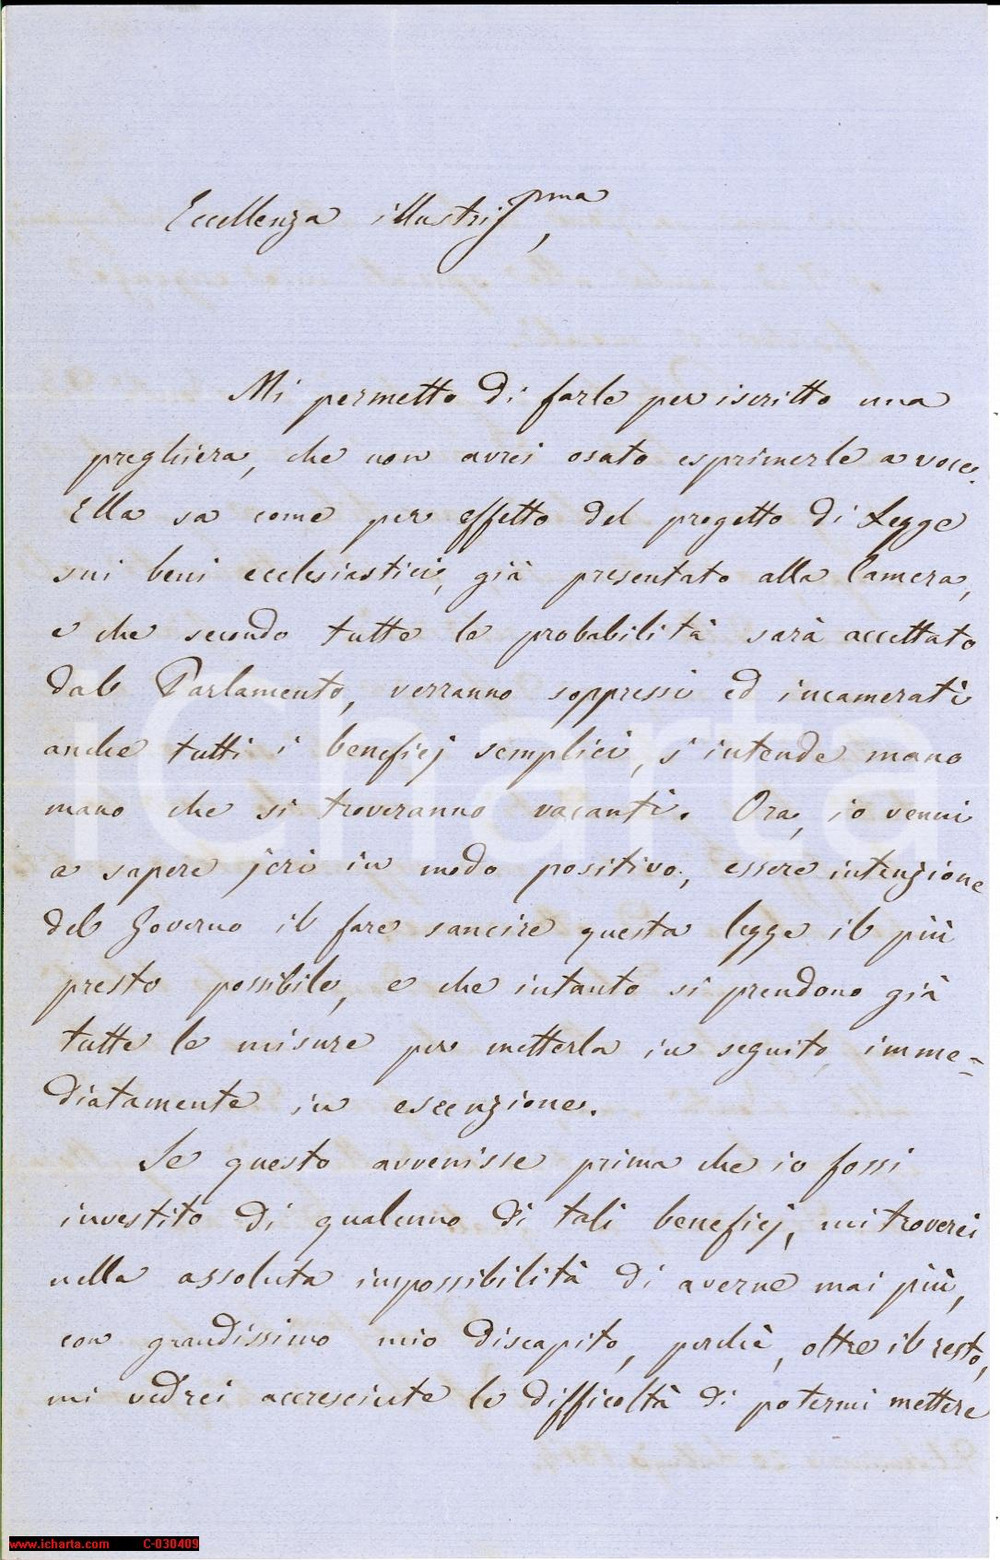 Eccellenza illustrissma,
Mi permetto di farle per iscritto una
preghiera, che non avrei osato esprimerle a voce.
Ella sa come per effetto del progetto di Legge
sui beni ecclesiastici, già presentato alla Camera,
e che secondo tutte le probabilità sarà accettato
dal Parlamento, verranno soppressi ed incamerati
anche tutti i beneficj semplici, s'intende mano
mano che si troveranno vacanti. Ora, io venni
a sapere jeri in modo positivo, essere intenzione
del Governo il fare sancire questa legge il più
presto possibile, e che intanto si prendono già
tutte le misure per metterla in seguito imme=
diatamente in esecuzione.
Se questo avvenisse prima che io fossi
investito di qualcuno di tali beneficj, mi troverei
nella assoluta impossibilità di averne mai più,
con grandissimo mio discapito, perchè, oltre il resto,
mi vedrei accresciute le difficoltà di potermi mettere
iCharta
www.icharta.com C-030409